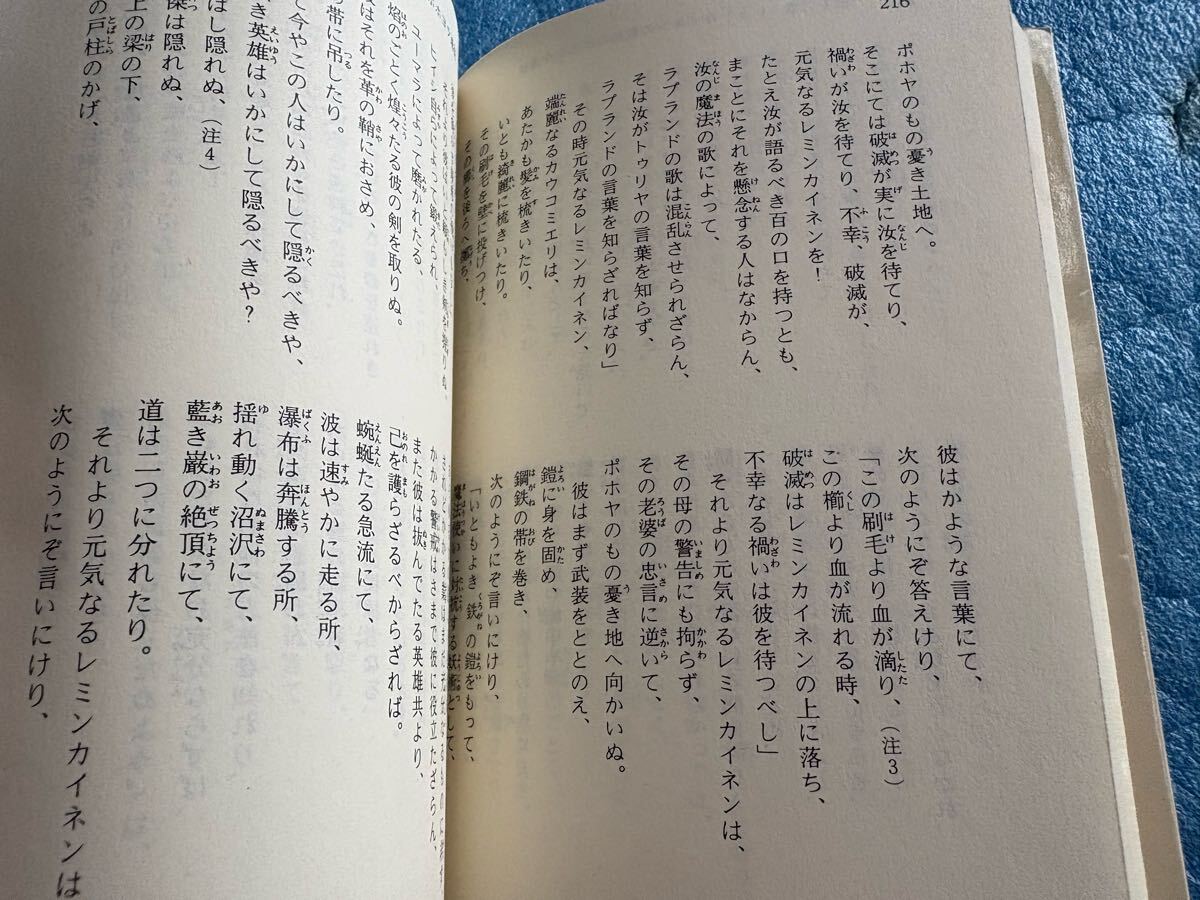 216
ポホヤのもの憂き土地へ。
そこにては破滅が実に汝を待てり、
禍いが汝を待てり、不幸、破滅が、
元気なるレミンカイネンを!
たとえ汝が語るべき百の口を持つとも、
まことにそれを懸念する人はなからん、
汝の魔法の歌によって、
ラプランドの歌は混乱させられざらん、
そは汝がトゥリヤの言葉を知らず、
ラプランドの言葉を知らざればなり」
その時元気なるレミンカイネン、
端麗なるカウコミエリは、
あたかも髪を梳きいたり、
いとも綺麗に梳きいたり。
その刷毛を壁に投げつけ、
彼はかような言葉にて、
次のようにぞ答えけり、
「この刷毛より血が滴り、(注3)
この櫛より血が流れる時、
破滅はレミンカイネンの上に落ち、
不幸なる禍いは彼を待つべし」
それより元気なるレミンカイネンは、
その母の警告にも拘らず、
その老婆の忠言に逆いて、
ポホヤのもの憂き地へ向かいぬ。
彼はまず武装をととのえ、
鎧に身を固め、
鋼鉄の帯を巻き、
次のようにぞ言いにけり、
「いともよき鉄の鎧をもって、
魔法使いに対抗する妖術として、
ユーマラによって磨かれたる、
焰のごとく煌々たる彼の剣を取りぬ。
はそれを革の鞘におさめ、
帯に吊したり。
て今やこの人はいかにして隠るべきや、
き英雄はいかにして隠るべきや?
はし隠れぬ、(注4)
傑は隠れぬ、
上の梁の下、
の戸柱のかげ、
かかる警戒はさまで彼に役立たざらん、
また彼は抜んでたる英雄共より、
己を護らざるべからざれば。
蜿蜒たる急流にて、
波は速やかに走る所、
瀑布は奔騰する所、
揺れ動く沼沢にて、
藍き巌の絶頂にて、
道は二つに分れたり。
それより元気なるレミンカイネンは
次のようにぞ言いにけり、